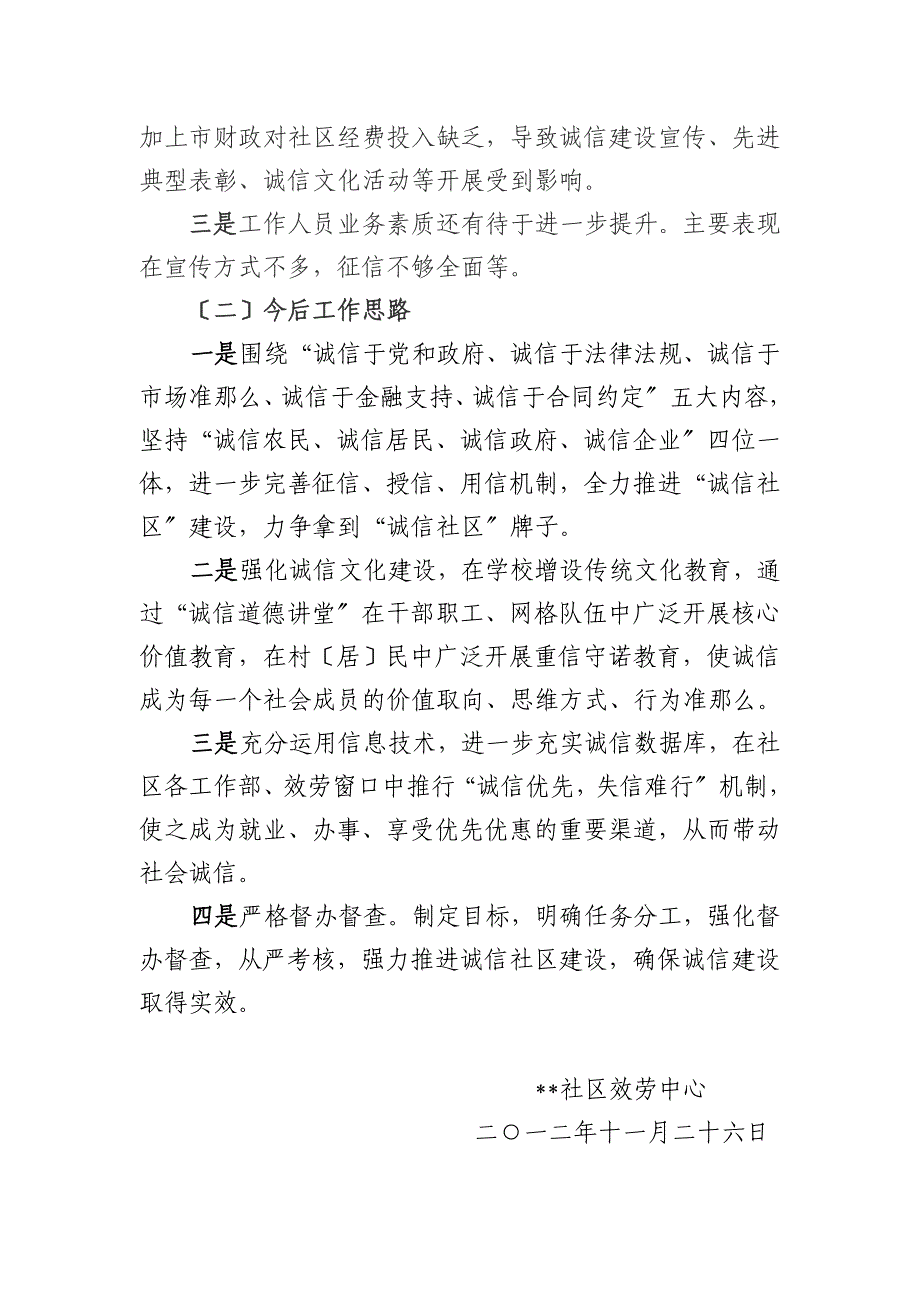 加上市财政对社区经费投入缺乏，导致诚信建设宣传、先进
典型表彰、诚信文化活动等开展受到影响。
三是工作人员业务素质还有待于进一步提升。主要表现
在宣传方式不多，征信不够全面等。
〔二〕今后工作思路
一是围绕“诚信于党和政府、诚信于法律法规、诚信于
市场准那么、诚信于金融支持、诚信于合同约定〞五大内容，
坚持“诚信农民、诚信居民、诚信政府、诚信企业〞四位一
体，进一步完善征信、授信、用信机制，全力推进“诚信社
区〞建设，力争拿到“诚信社区〞牌子。
二是强化诚信文化建设，在学校增设传统文化教育，通
过“诚信道德讲堂〞在干部职工、网格队伍中广泛开展核心
价值教育，在村〔居〕民中广泛开展重信守诺教育，使诚信
成为每一个社会成员的价值取向、思维方式、行为准那么。
三是充分运用信息技术，进一步充实诚信数据库，在社
区各工作部、效劳窗口中推行“诚信优先，失信难行〞机制，
使之成为就业、办事、享受优先优惠的重要渠道，从而带动
社会诚信。
四是严格督办督查。制定目标，明确任务分工，强化督
办督查，从严考核，强力推进诚信社区建设，确保诚信建设
取得实效。
**社区效劳中心
二〇一二年十一月二十六日